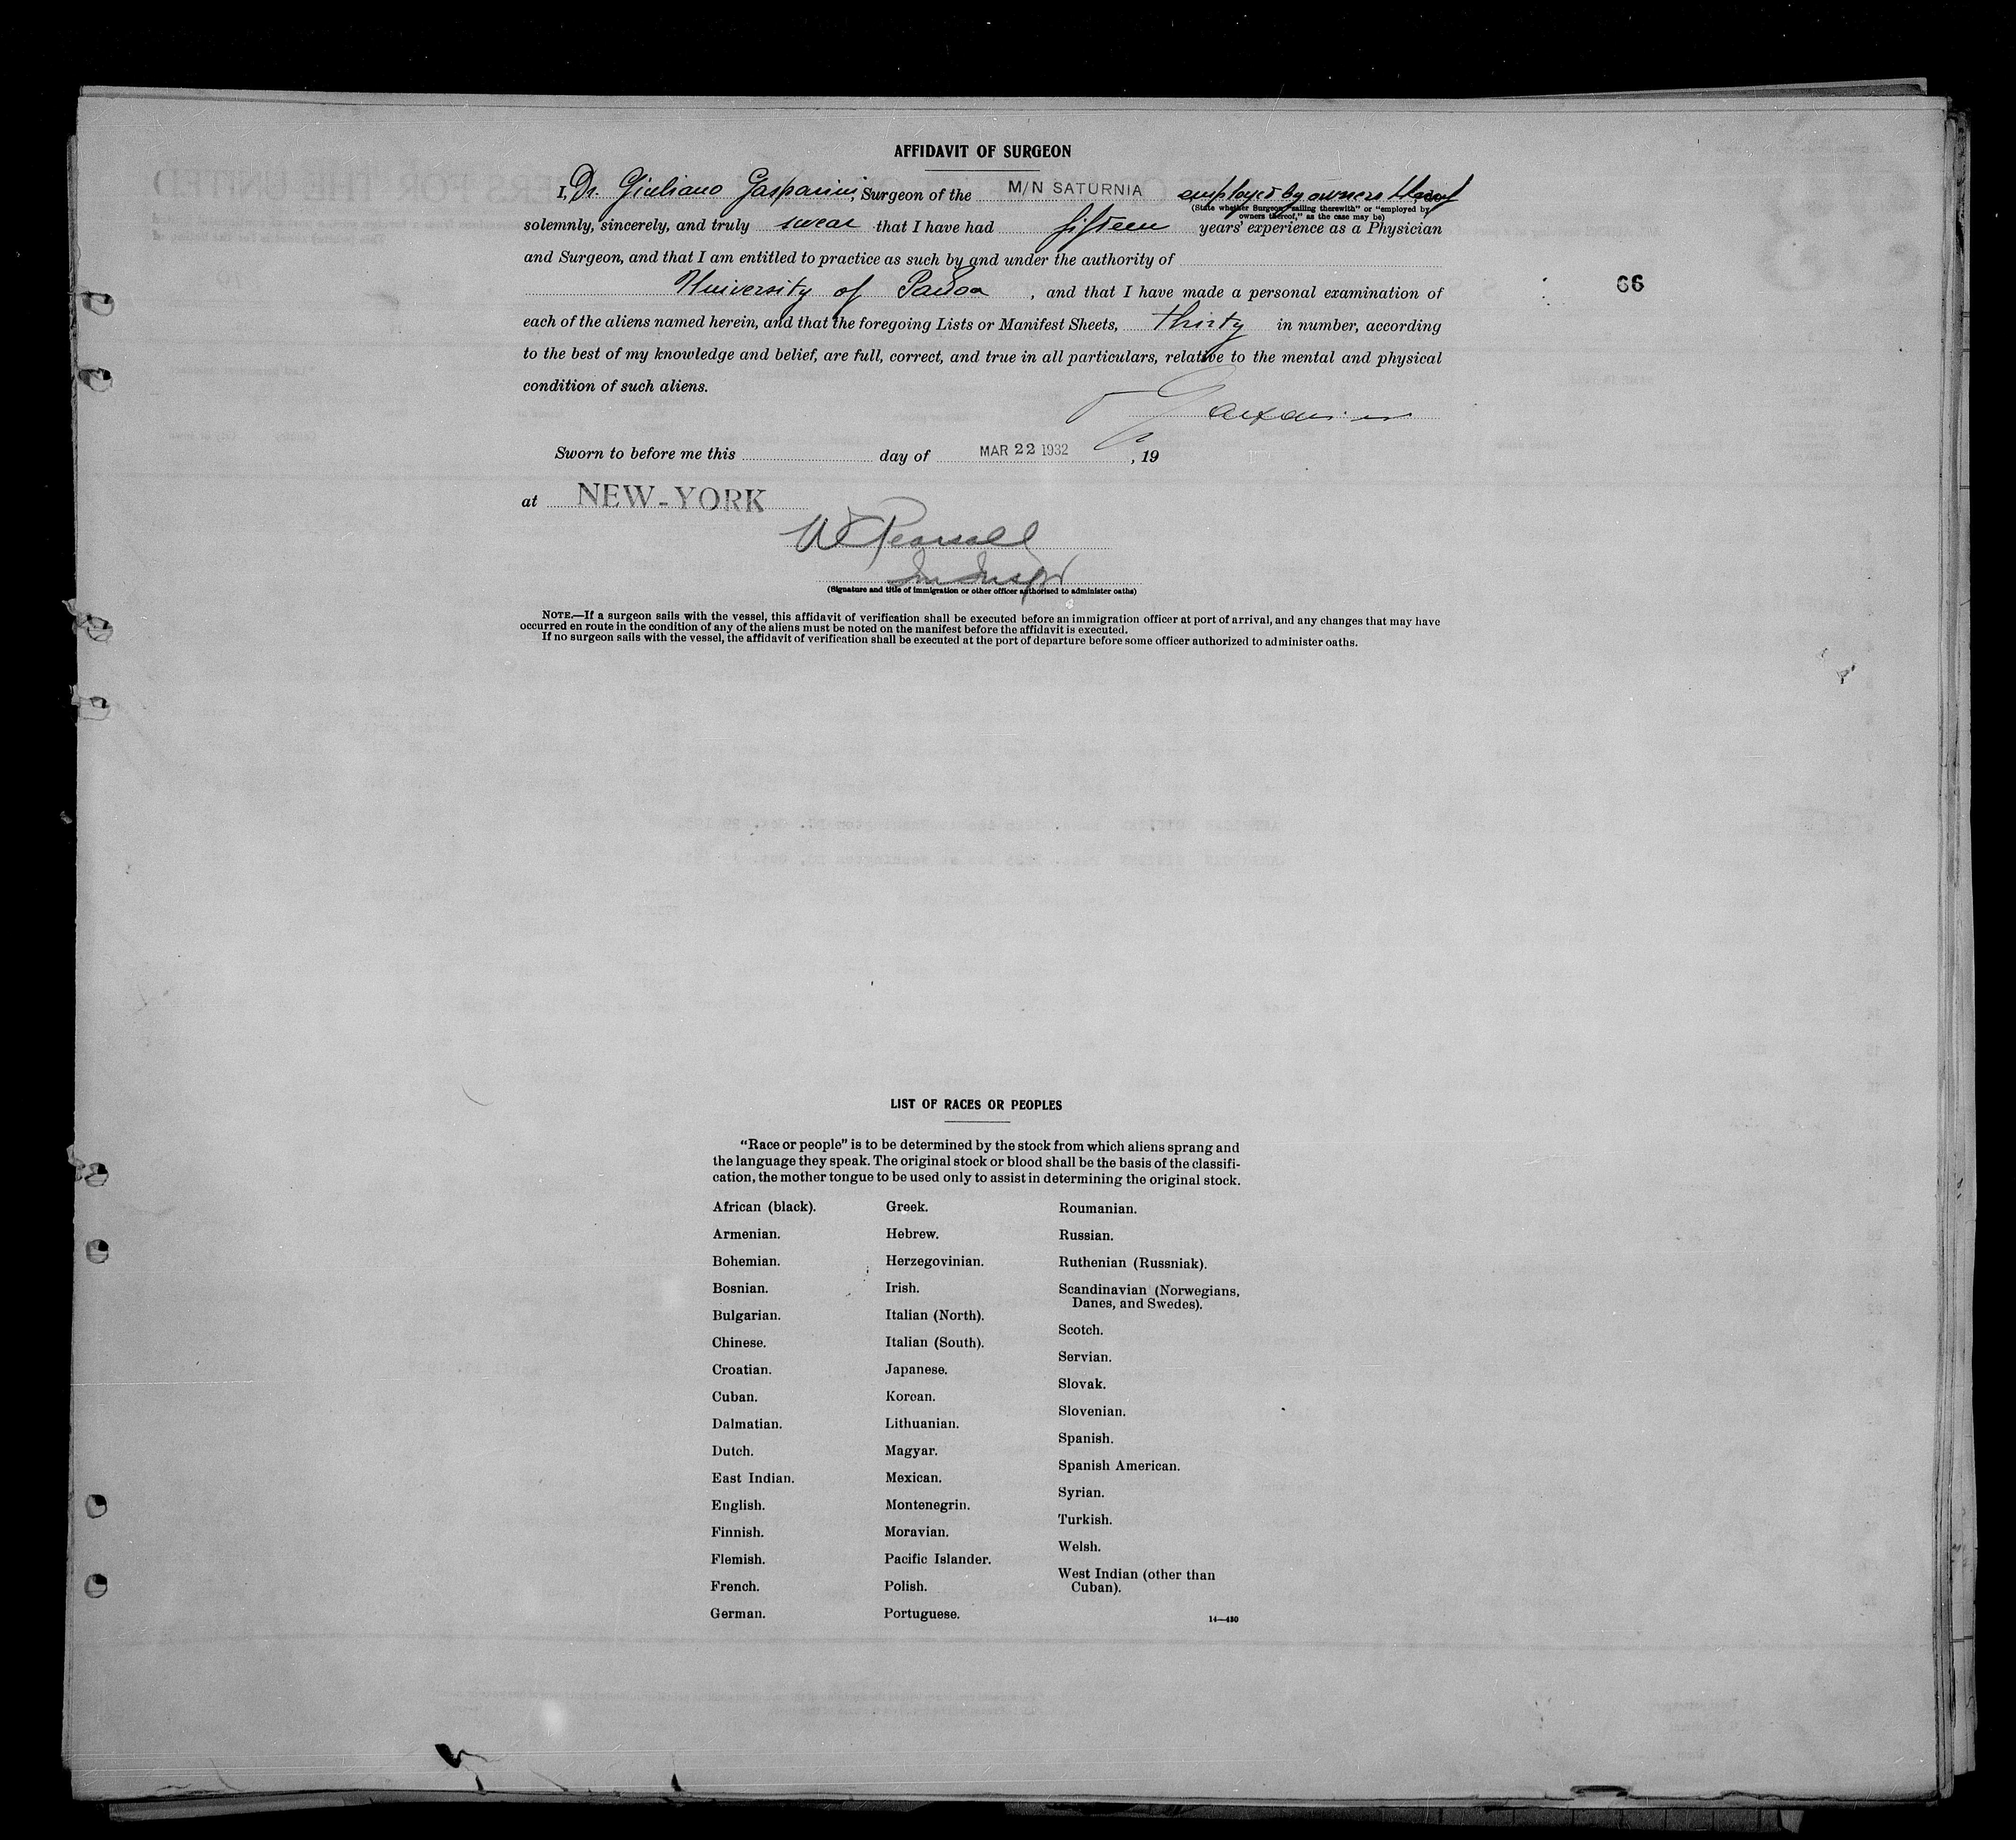 AFFIDAVIT OF SURGEON
I, Dr. Giuliano Gasparini, Surgeon of the M/N SATURNIA employed by owners thereof
(State whether Surgeon "sailing therewith" or "employed by
owners thereof," as the case may be)
solemnly, sincerely, and truly swear that I have had fifteen years' experience as a Physician
and Surgeon, and that I am entitled to practice as such by and under the authority of
University of Padoa, and that I have made a personal examination of
66
each of the aliens named herein, and that the foregoing Lists or Manifest Sheets, thirty in number, according
to the best of my knowledge and belief, are full, correct, and true in all particulars, relative to the mental and physical
condition of such aliens.
Sworn to before me this day of MAR 22 1932, 19
at NEW-YORK
Pearsall
Im Inspr
(Signature and title of immigration or other officer authorized to administer oaths)
NOTE.—If a surgeon sails with the vessel, this affidavit of verification shall be executed before an immigration officer at port of arrival, and any changes that may have
occurred en route in the condition of any of the aliens must be noted on the manifest before the affidavit is executed.
If no surgeon sails with the vessel, the affidavit of verification shall be executed at the port of departure before some officer authorized to administer oaths.
LIST OF RACES OR PEOPLES
"Race or people" is to be determined by the stock from which aliens sprang and
the language they speak. The original stock or blood shall be the basis of the classifi-
cation, the mother tongue to be used only to assist in determining the original stock.
African (black).
Armenian.
Bohemian.
Bosnian.
Bulgarian.
Chinese.
Croatian.
Cuban.
Dalmatian.
Dutch.
East Indian.
English.
Finnish.
Flemish.
French.
German.
Greek.
Hebrew.
Herzegovinian.
Irish.
Italian (North).
Italian (South).
Japanese.
Korean.
Lithuanian.
Magyar.
Mexican.
Montenegrin.
Moravian.
Pacific Islander.
Polish.
Portuguese.
Roumanian.
Russian.
Ruthenian (Russniak).
Scandinavian (Norwegians,
Danes, and Swedes).
Scotch.
Servian.
Slovak.
Slovenian.
Spanish.
Spanish American.
Syrian.
Turkish.
Welsh.
West Indian (other than
Cuban).
14—430